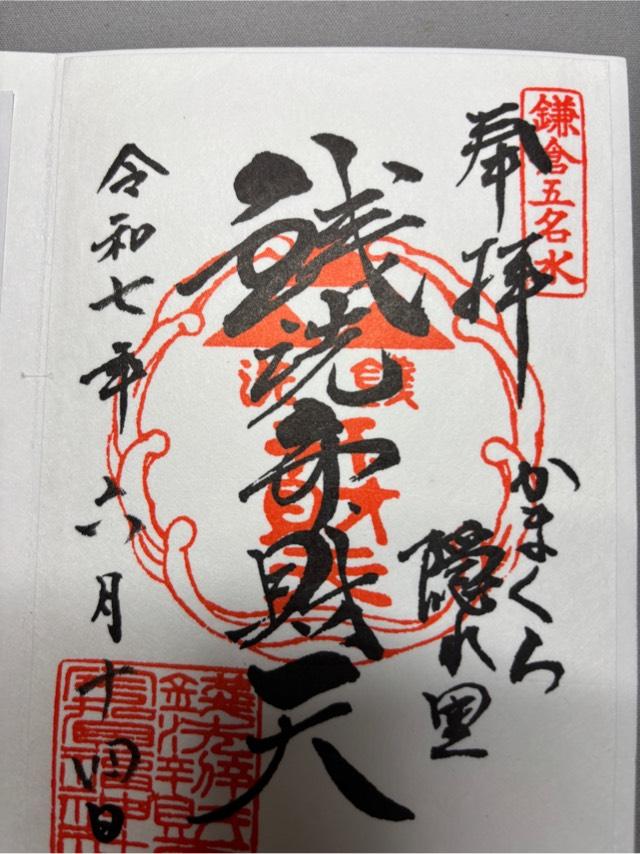 鎌倉五名水
奉拝
かまくら
隠れ里
銭洗弁財天
令和七年六月十四日